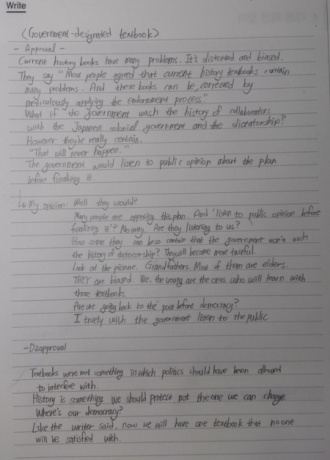 Write
<Government-designated textbook>
- Approval -
Current history books have many problems. It's distorted and biased.
They say "Most people agreed that current history textbooks contain
many problems. And these books can be corrected by
meticulously applying the enforcement process."
What if the government wash the history of collaborators
with the Japanese colonial government and the dictatorship?
However they're really certain.
"That will never happen."
The government would listen to public opinion about the plan
before finalizing it.
My opinion: Well they would?
Many people are opposing this plan. And 'listen to public opinion before
finalizing it'? No way. Are they listening to us?
How come they are certain that the government won't wash
the history of dictatorship? They will become more
Look at the planner. Grandfathers. Most of them are elders.
They are biased. We, the young are the ones who will learn with
those textbooks.
Are we going back to the past before democracy?
I truely wish the government listen to the public
-Disapproval
Textbooks were not something in which politics should have been allowed
to interfere with.
History is something we should protect not the one we can change.
Where's our democracy?
Like the writer said, now we will have one textbook that no one
will be satisfied with.